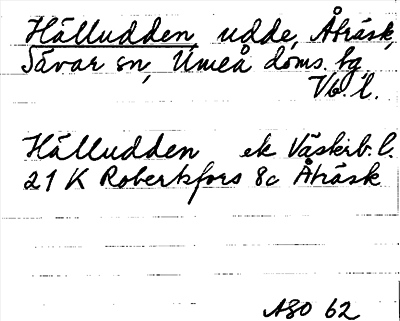 Hälludden, udde, Åträsk,
Sävar sn, Umeå doms. hg
Vb. l.
Hälludden ek Västerb. l.
21 K Robertsfors 8c Åträsk
ASO 62